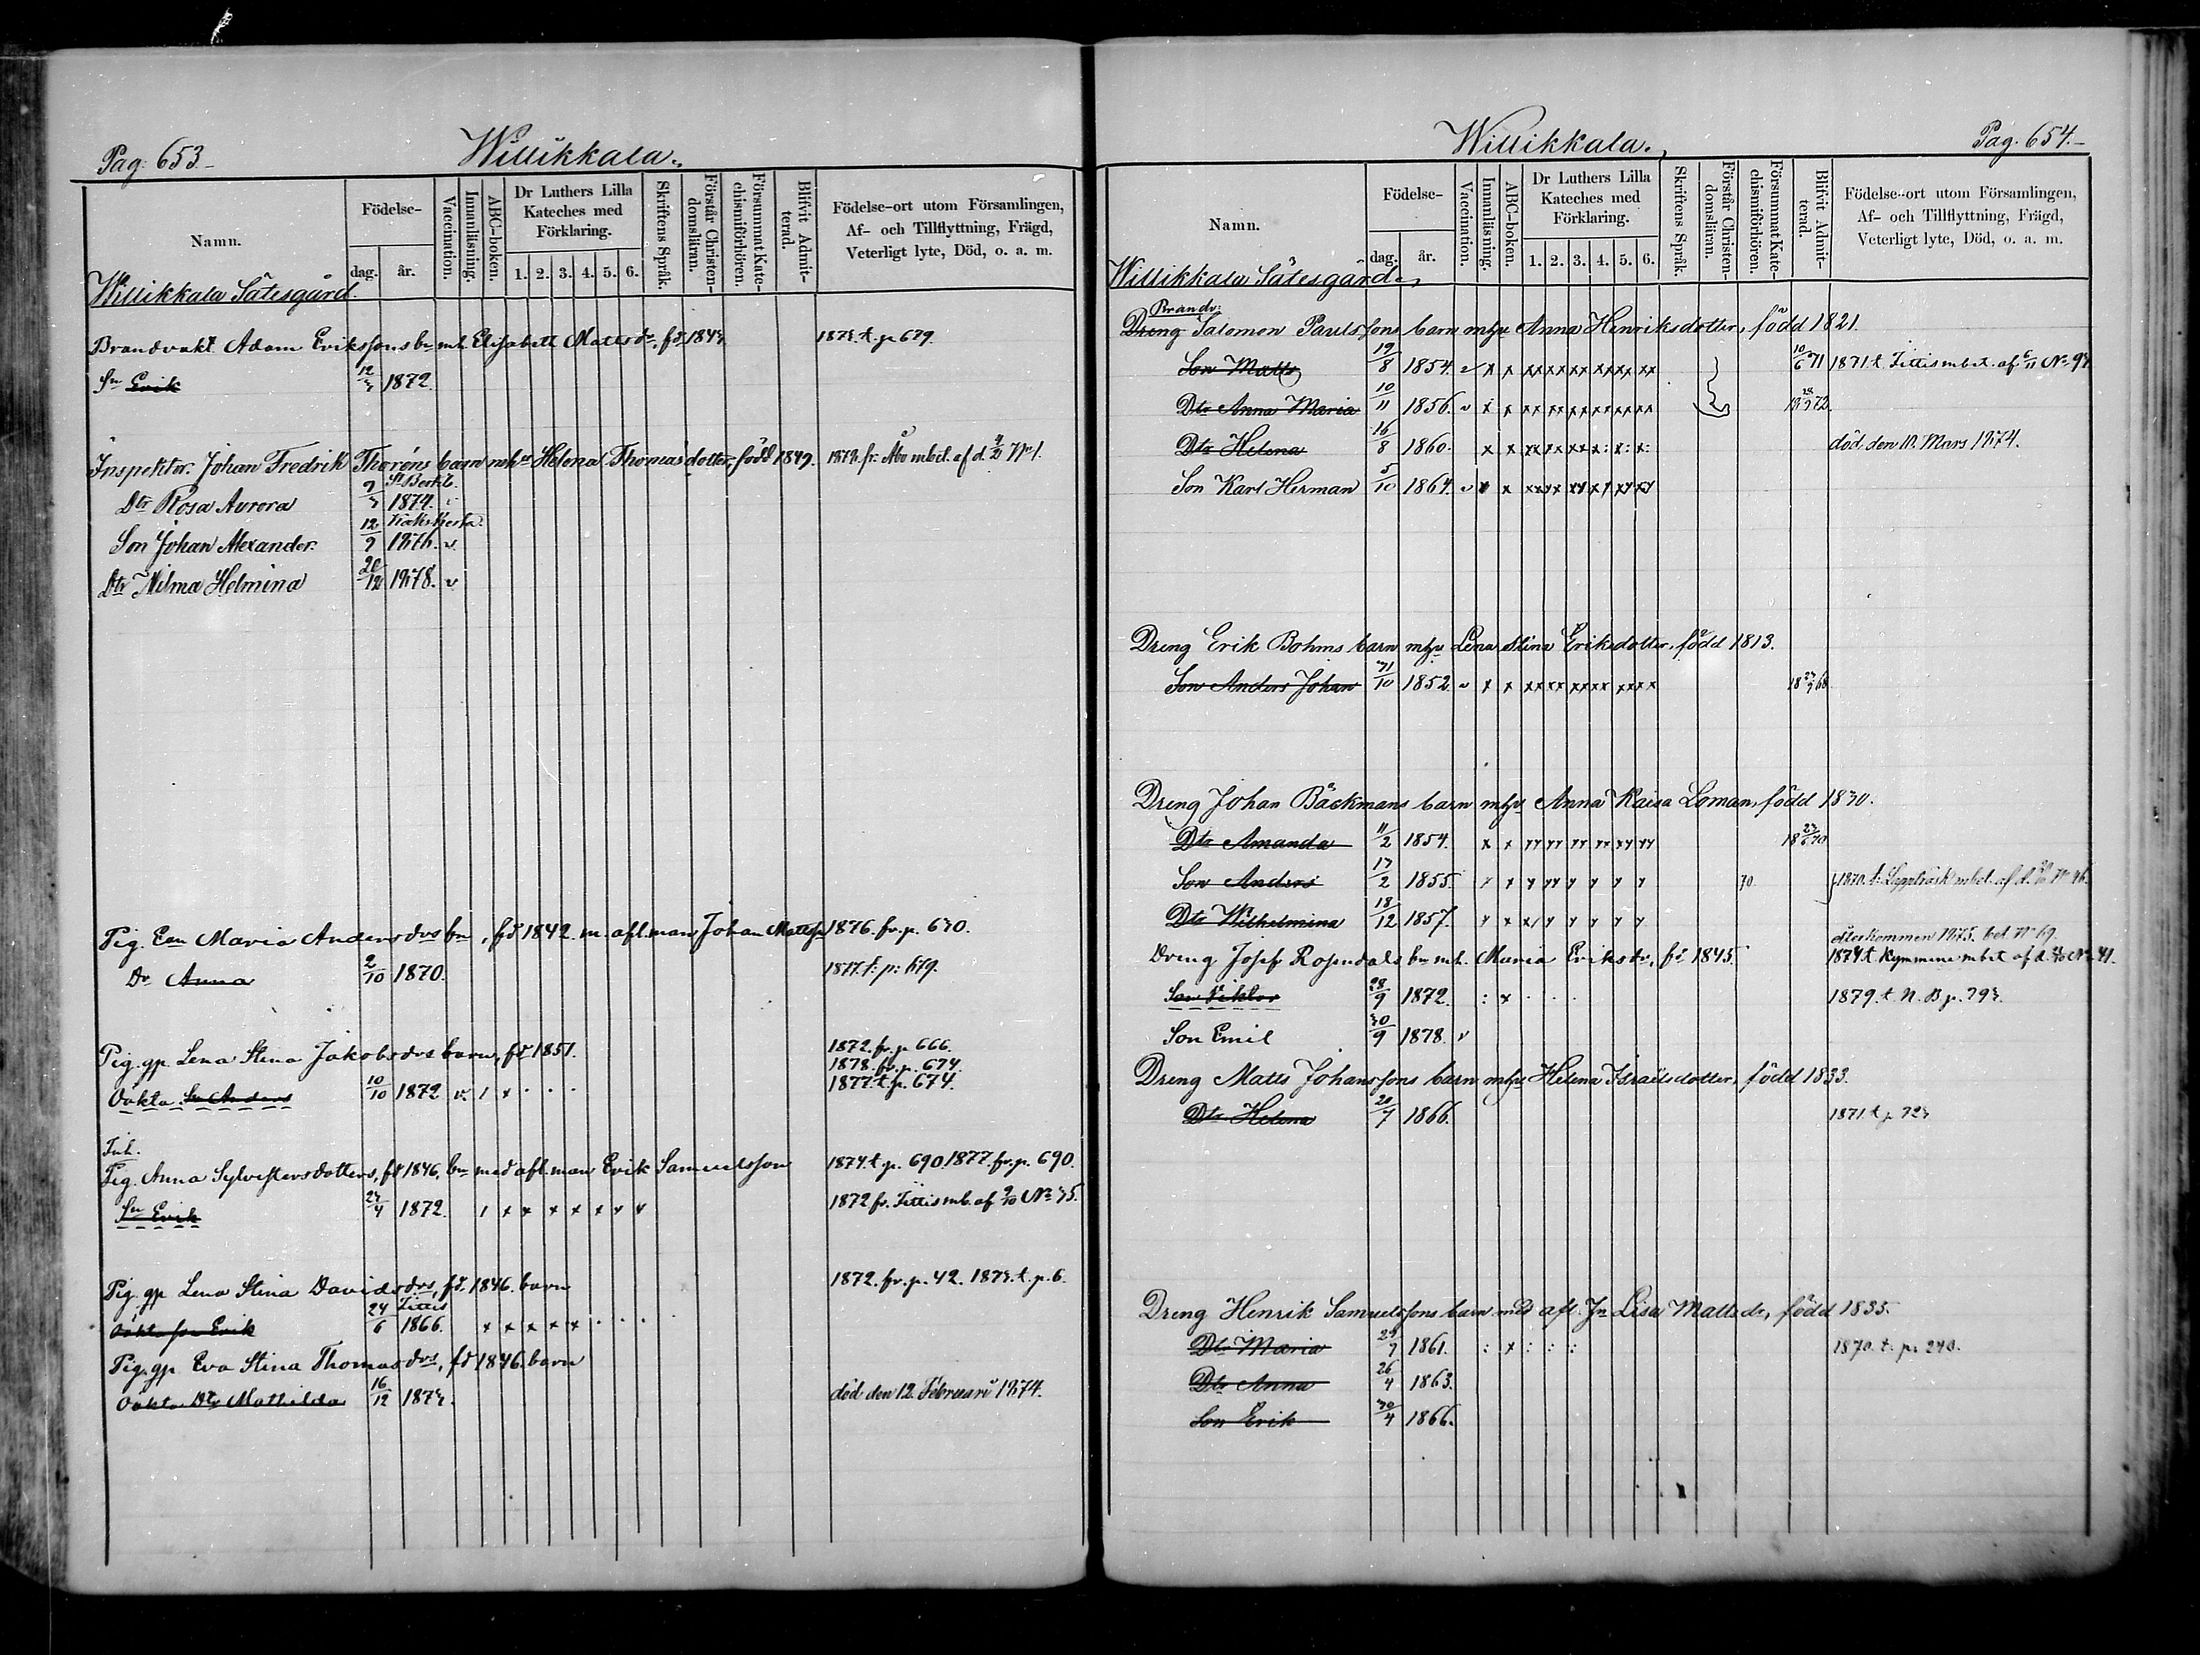 Pag. 653
Willikkala.
Namn.
Födelse-
dag.
år.
Vaccination.
Innanläsning.
ABC-boken.
Dr Luthers Lilla
Kateches med
Förklaring.
1. 2. 3. 4. 5. 6.
Skriftens Språk.
Förstår Christen-
domsläran.
Försummat Kate-
chismiförhören.
Blifvit Admit-
terad.
Födelse-ort utom Församlingen,
Af- och Tillflyttning, Frägd,
Veterligt lyte, Död, o. a. m.
Willikkala Sätesgård.
Brandvakt Adam Erikssons bn mh. Elisabett Mattsdr, fd 1843 1873. t. p 679.
Sn Erik 12/3 1872.
Inspektor Johan Fredrik Thoréns barn mhu Helena Thomasdotter, född 1849.
Dtr Rosa Aurora 9/3 1874.
Son Johan Alexander. 12/9 1876. v
Dtr Hilma Helmina 20/12 1878. v
Pig. Eva Maria Andersdrs bn, fd 1842. m. afl. man Johan Mattss 1876. fr. p. 630.
Dr Anna 2/10 1870. 1877. t: p: 679.
Pig. gp. Lena Stina Jakobsdrs barn, fd 1851. 1872. fr. p. 666.
1878. fr. p. 674.
Oäkta Sn Anders 10/10 1872 v. 1877. t. p. 674.
Inh.
Pig. Anna Sylvestersdotters, fd 1846, bn med afl. man Erik Samuelsson 1874. t. p. 690. 1877. fr. p. 690.
Sn Erik 23/4 1872. 1872 fr. Jittis mb. af 9/10 No 35.
Pig. gp Lena Stina Davidsdrs, fd. 1846. barn 1872. fr. p. 42. 1873. t. p. 6.
Jittis
Oäkta son Erik 24/6 1866.
Pig. gp Eva Stina Thomasdrs, fd 1846. barn
Oäkta Dtr Mathilda 16/12 1873. död den 12. Februari 1874.
Willikkala.
Pag. 654.
Namn.
Födelse-
dag.
år.
Vaccination.
Innanläsning.
ABC-boken.
Dr Luthers Lilla
Kateches med
Förklaring.
1. 2. 3. 4. 5. 6.
Skriftens Språk.
Förstår Christen-
domsläran.
Försummat Kate-
chismiförhören.
Blifvit Admit-
terad.
Födelse-ort utom Församlingen,
Af- och Tillflyttning, Frägd,
Veterligt lyte, Död, o. a. m.
Willikkala Sätesgård.
Brandv:
Dreng Salomon Paulssons barn mhu Anna Henriksdotter, född 1821.
Son Matts 19/8 1854. v 10/6 71 1871. t. Jittis mbet. af
Dtr Anna Maria 10/11 1856. v
Dtr Helena 16/8 1860. död den 10. Mars 1874.
Son Karl Herman 5/10 1864. v
Dreng Erik Bohms barn mhu Lena Stina Eriksdotter, född 1813.
Son Anders Johan 31/10 1852. v
Dreng Johan Bäckmans barn mhu Anna Kaisa Loman, född 1830.
Dtr Amanda 11/2 1854.
Son Anders 17/2 1855. 70.
Dtr Wilhelmina 18/12 1857.
återkommen 1875. bet. No 69.
Dreng Josef Rosendals bn mh. Maria Eriksdr, fd 1845. 1874 t. Kymmene mbet af
Son Viktor 28/9 1872. 1879. t. N. B p. 793.
Son Emil 30/9 1878. v
Dreng Matts Johanssons barn mhu Helena Israelsdotter, född 1833.
Dtr Helena 20/7 1866. 1871. t. p 723
Dreng Henrik Samuelssons barn med afl. Jn Lisa Mattsdr, född 1835.
Dtr Maria 29/7 1861. 1870. t: p. 240.
Dtr Anna 26/4 1863.
Son Erik 30/4 1866.